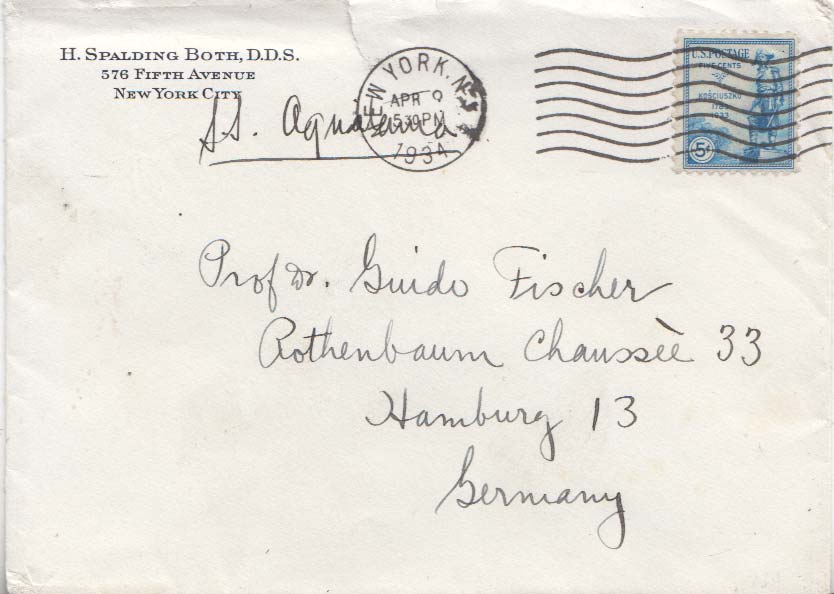 H. SPALDING BOTH, D.D.S.
576 FIFTH AVENUE
NEW YORK CITY
S.S. Aquitania
NEW YORK, N.Y.
APR 9
530 PM
1934
U.S. POSTAGE
FIVE CENTS
KOSCIUSZKO
1783
1933
5¢
Prof Dr. Guido Fischer
Rothenbaum Chaussèe 33
Hamburg 13
Germany